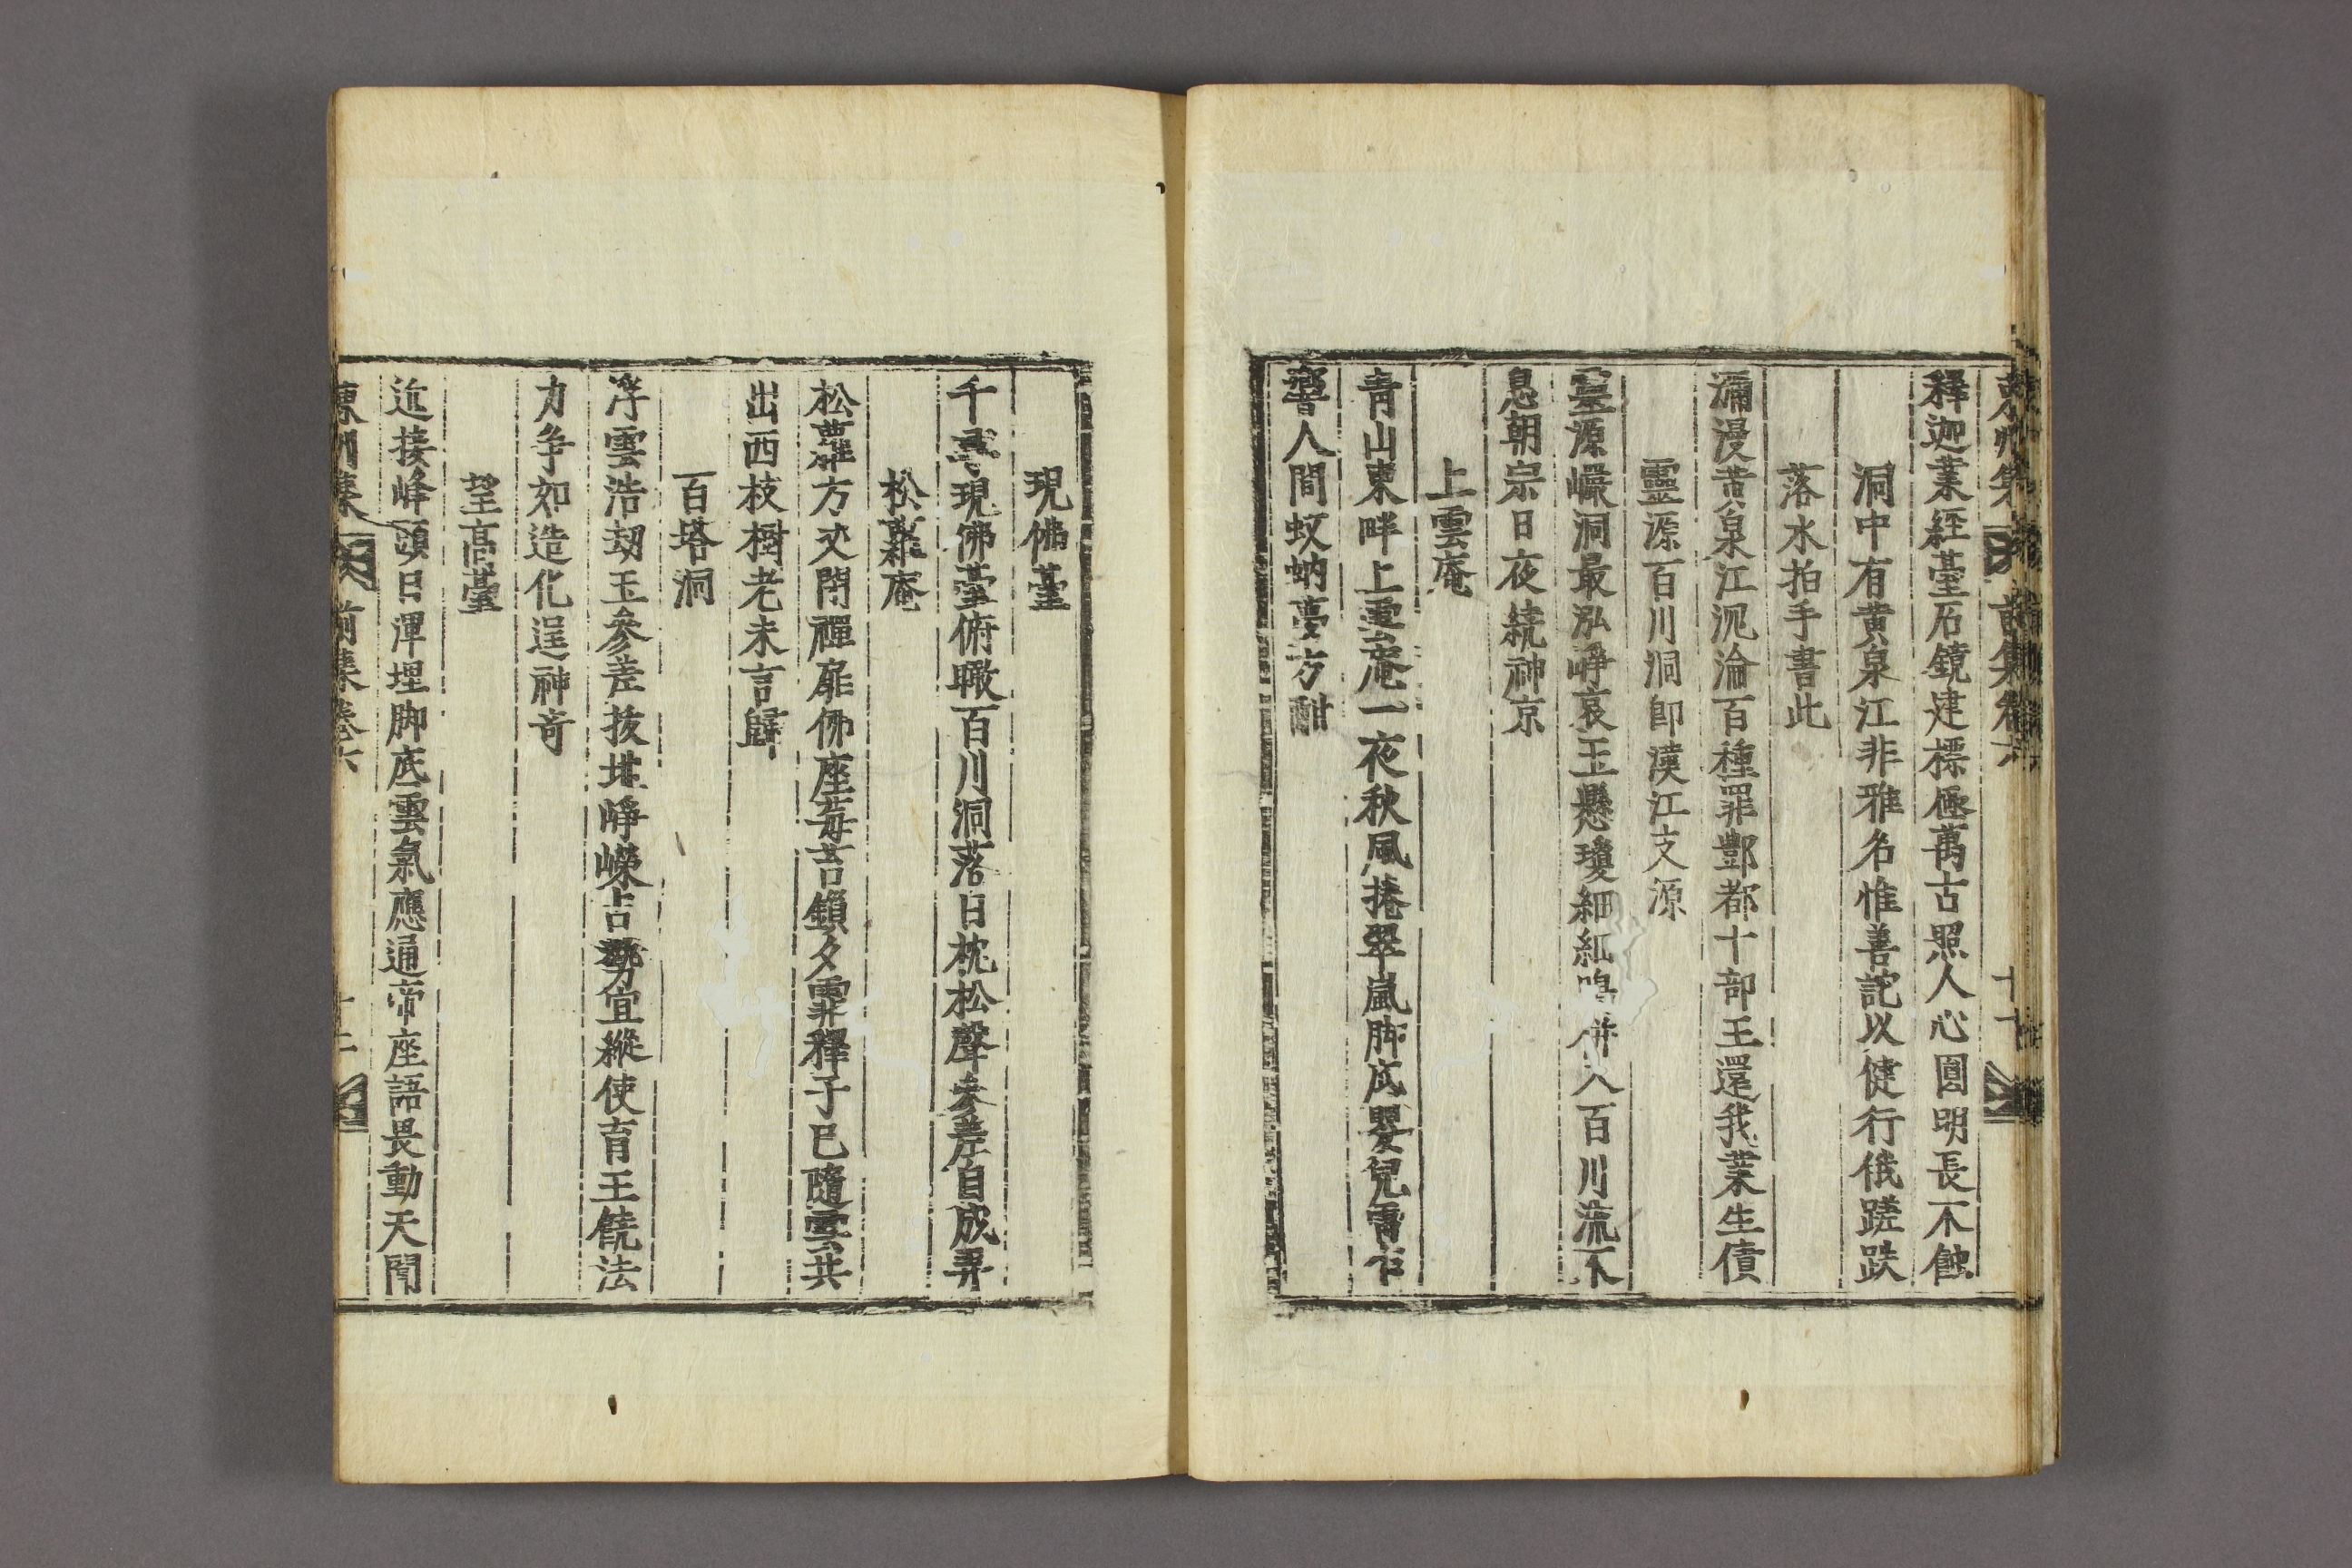 釋迦葉經臺石鏡建標極萬古照人心圓明長不蝕
洞中有黄泉江非雅名惟善詑以健行俄蹉跌
落水拍手書此
瀰漫黄泉江沉淪百種罪酆都十部王還我業生債
靈源百川洞卽漢江支源
靈源巖洞最泓崢哀玉懸瓊細紐鳴併入百川流不
息朝宗日夜繞神京
上雲庵
青山東畔上雲庵一夜秋風捲翠嵐脚底嬰兒雷乍
響人間蚊蚋夢方酣
現佛臺
千尋現佛臺俯瞰百川洞落日枕松聲參差自成弄
松蘿庵
松蘿方丈閉禪扉佛座莓苔鎖夕霏釋子已隨雲共
出西枝樹老未言歸
百塔洞
浮雲浩劫玉參差拔地崢嶸占勢宜縱使育王饒法
力爭如造化逞神奇
望高臺
迮接峰頭日渾埋脚底雲氣應通帝座語畏動天聞
東州集 前集卷六 十二